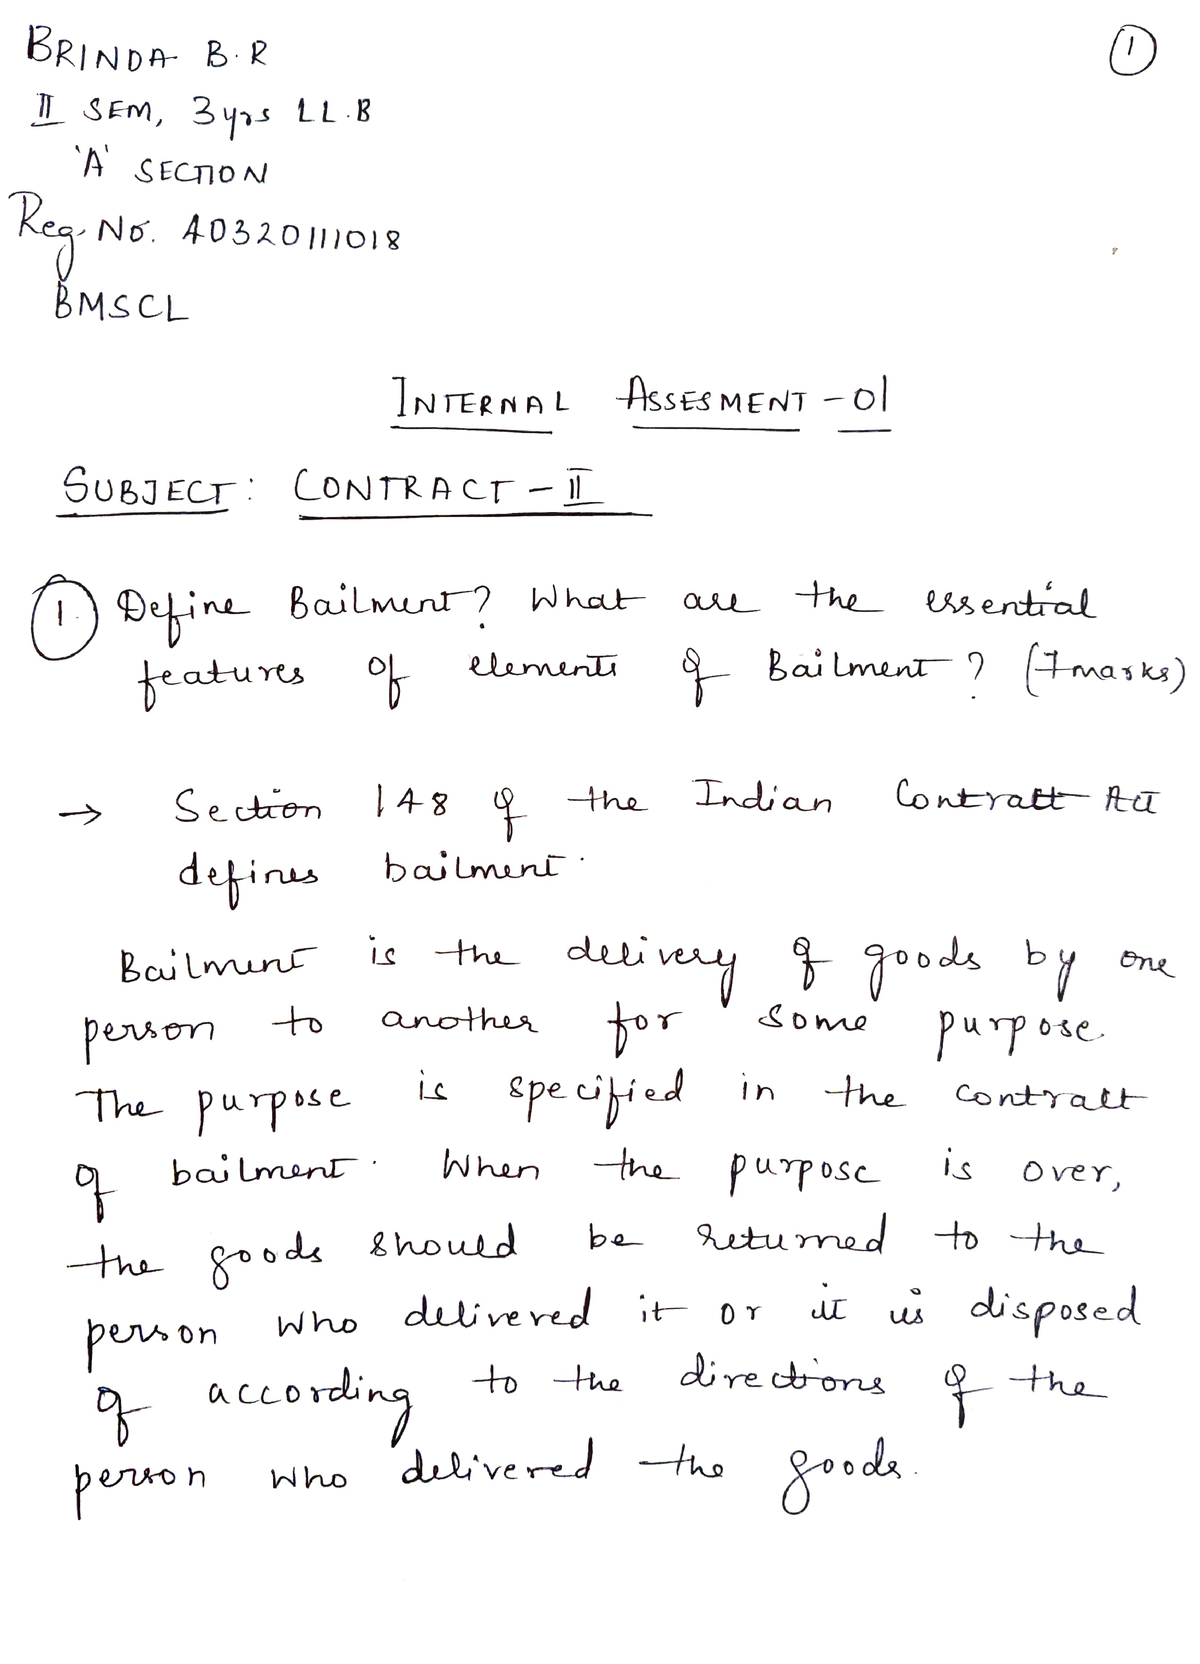 BRINDA B.R
1
II SEM, 3yrs LL.B
'A' SECTION
Reg. No. A0320111018
BMSCL
INTERNAL ASSESMENT - 01
SUBJECT: CONTRACT - II
1. Define Bailment? What are the essential
features of elements of Bailment? (7marks)
→ Section 148 of the Indian Contratt Act
defines bailment.
Bailment is the delivery of goods by one
person to another for some purpose.
The purpose is specified in the contratt
of bailment. When the purpose is over,
the goods should be returned to the
person who delivered it or it is disposed
of according to the directions of the
person who delivered the goods.